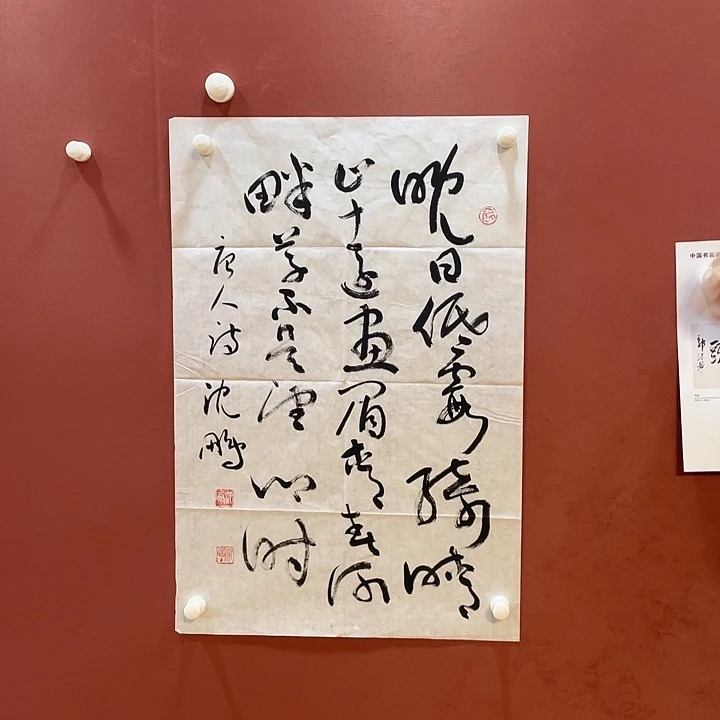 晚日低霞綺晴
山十遠畫眉青青河
畔草不是望鄉時
唐人诗 沈鹏
中国书画